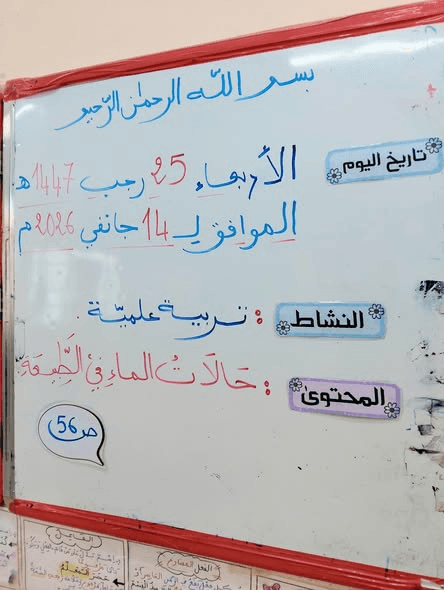 بسم الله الرحمان الرحيم
تاريخ اليوم
الأربعاء 25 رجب 1447 هـ
الموافق لـ 14 جانفي 2026 م
النشاط : تربية علميّة
المحتوى : حَالَاتُ الماءِ فِي الطَّبِيعَةِ.
ص 56
الفعل المضارع